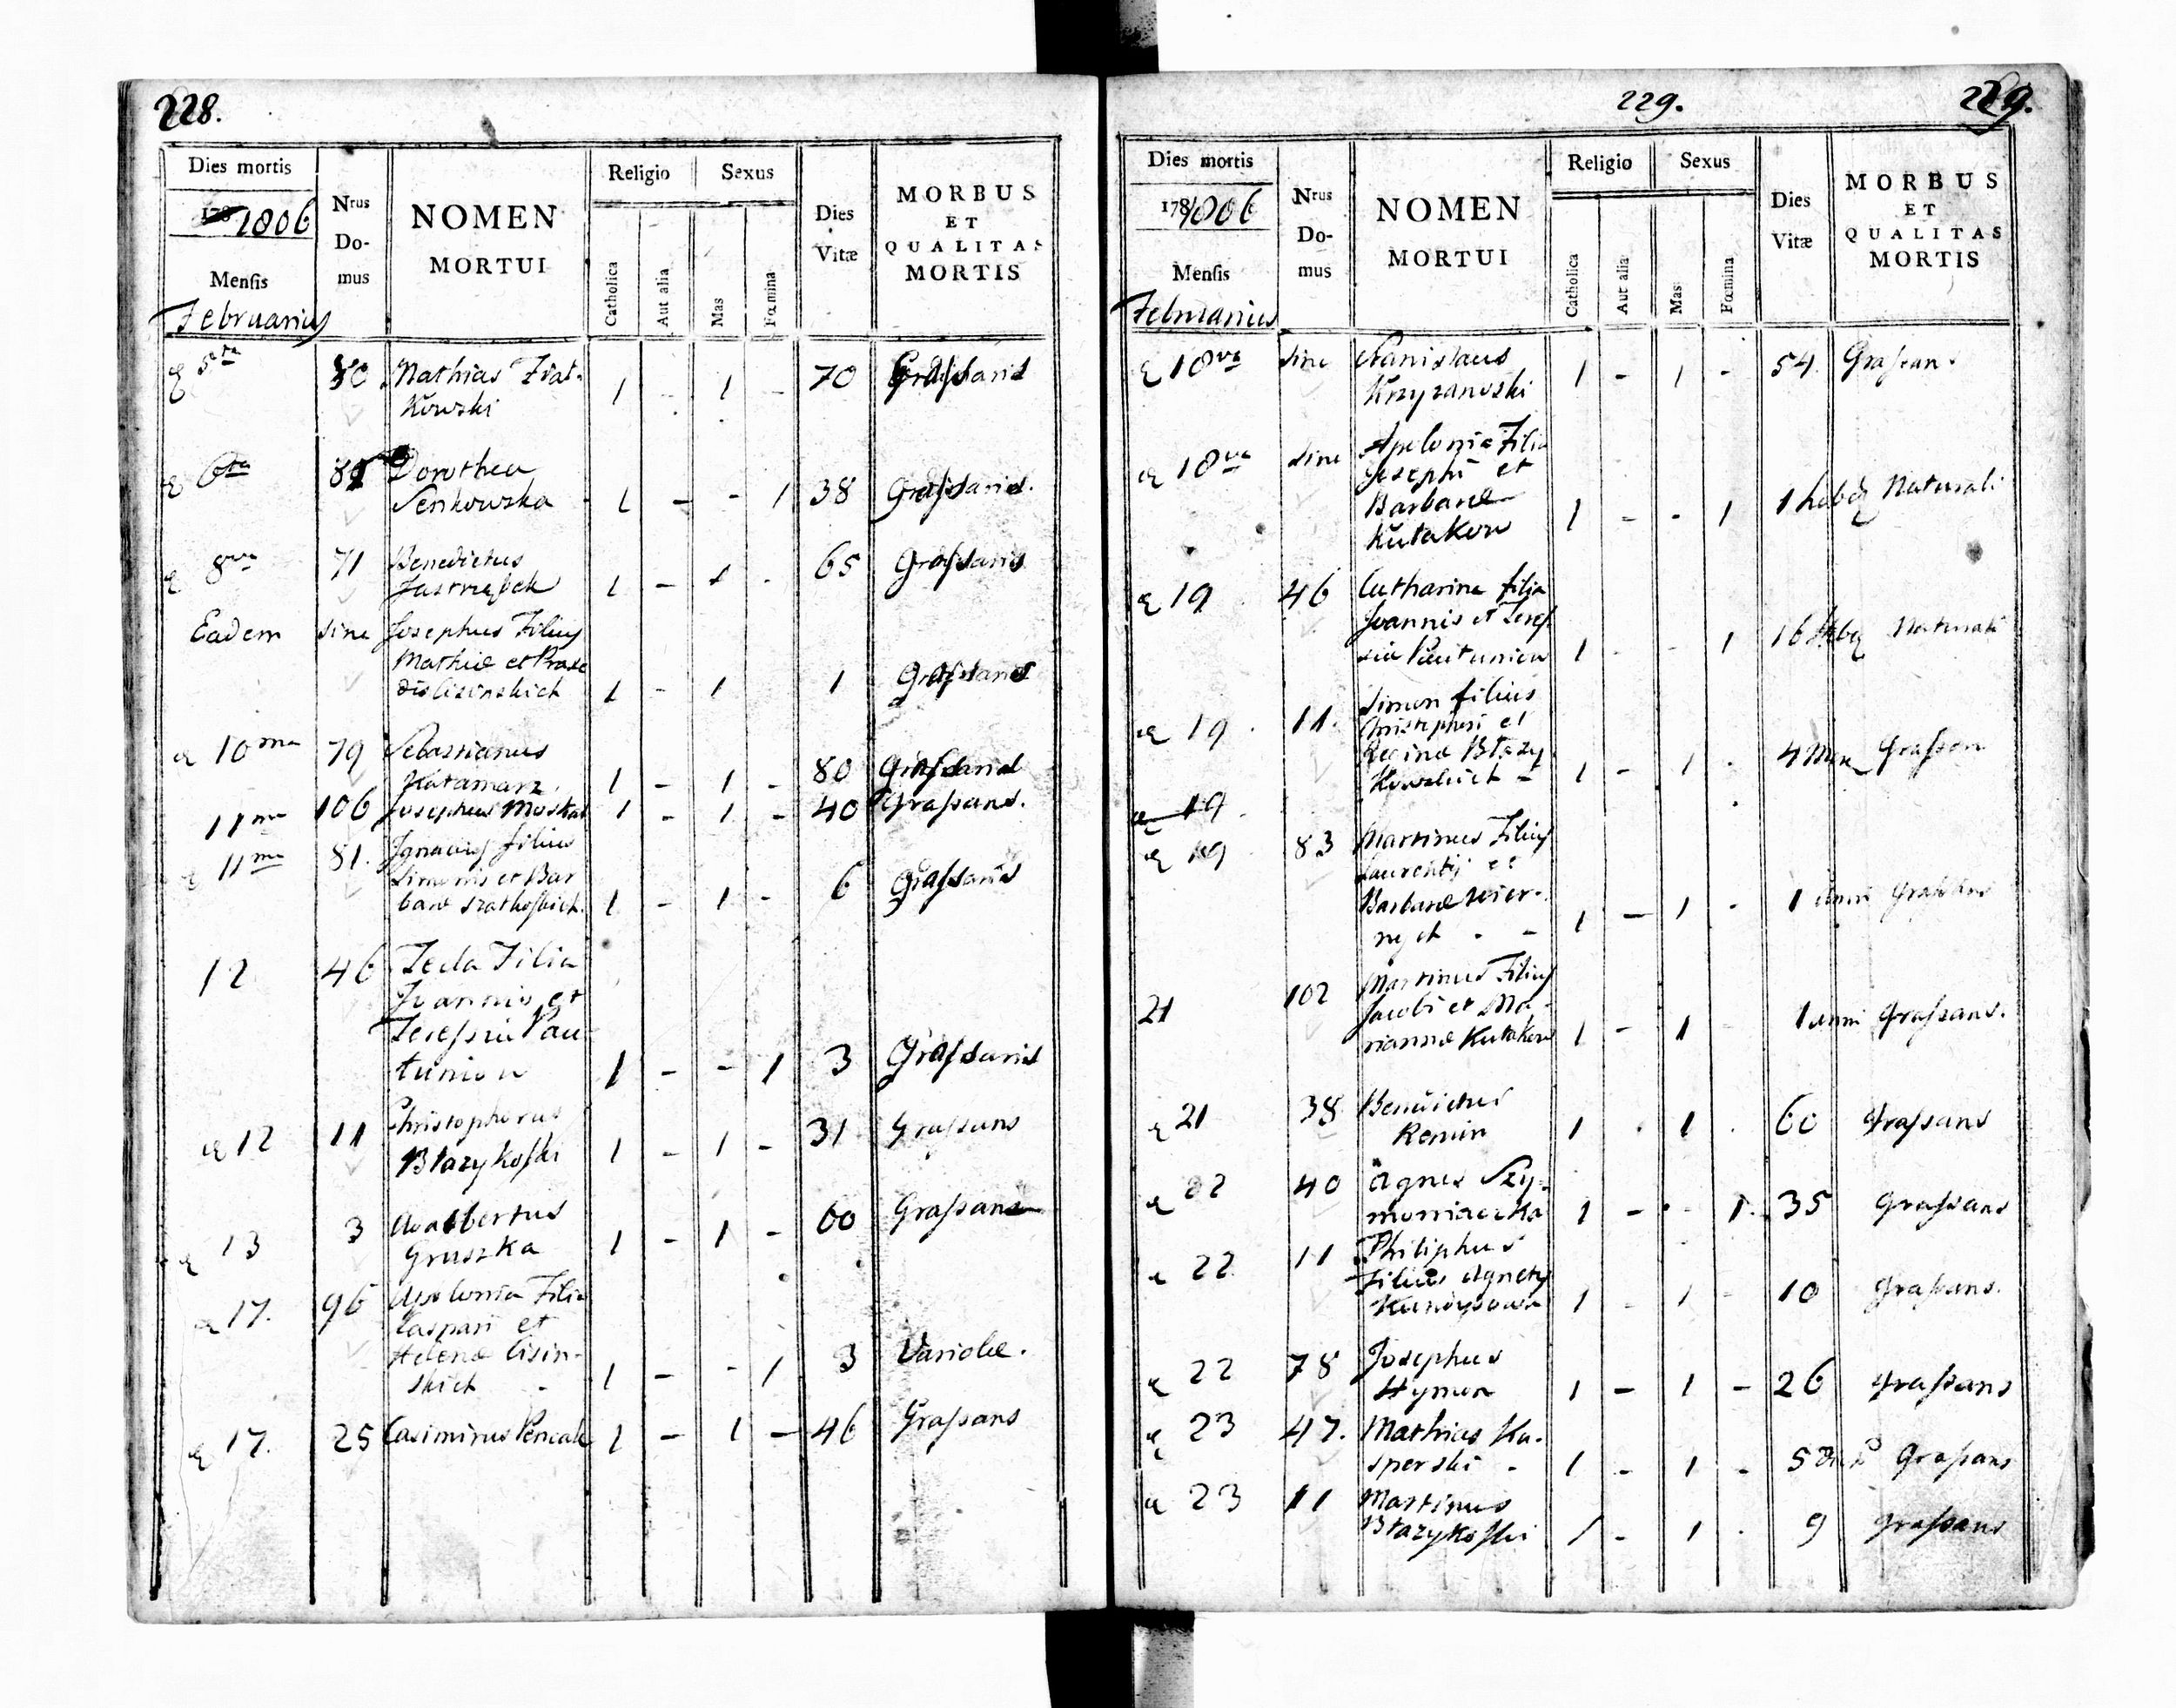 228.
Dies mortis
1806
Menſis
Februarius
Nrus
Do-
mus
NOMEN
MORTUI
Religio
Sexus
Catholica
Aut alia
Mas
Fœmina
Dies
Vitæ
MORBUS
ET
QUALITAS
MORTIS
5ta 30 Mathias Ziat- 70 Graſsans
Kowski 1 - 1 -
6ta Dorothea
Senkowska 1 - - 1 38 Graſsans.
8va 71 Benedictus 65 Graſsans
1 - 1 -
Eadem sine Josephus Filius
Mathiæ et Praxe
dis Cisinskich 1 - 1 1 Graſsans
10ma 79 Sebastianus
Katamarz 1 - 1 - 80 Graſsans
11ma 106 Josephus Moskal 1 - 1 - 40 Graſsans.
11ma 81. Ignacius filius
Simonis et Bar 6 Graſsans
baræ 1 - 1 -
12 46 Tecla Filia
Joannis et
Tereſsiæ Pau
tunion 1 - - 1 3 Graſsans
12 11 Christophorus 31 Graſsans
Błazykoſki 1 - 1 -
13 3 Adalbertus 60 Graſsans
Gruszka 1 - 1 -
17. 96 Apolonia Filia
Caspari et
Helenæ Cisin- 3 Variolæ.
skich - 1 - - 1
17. 25 Casimirus Pencak 1 - 1 - 46 Graſsans
229.
229.
Dies mortis
178 1806
Menſis
Februarius
Nrus
Do-
mus
NOMEN
MORTUI
Religio
Sexus
Catholica
Aut alia
Mas
Fœmina
Dies
Vitæ
MORBUS
ET
QUALITAS
MORTIS
18va sine Stanislaus 54 Graſsans
Krzyzanoski 1 - 1 -
18va sine Apolonia Filia
Josephi et
Barbaræ 1 - - 1 1 hebd Naturali
Kutakow
19 46 Catharina filia
Joannis et Tereſ
siæ Pautunion 1 - - 1 16 Naturali
19 11. Simon filius
Christophori et
Reginæ Błazy 4 Graſsan
Kowskich - 1 - 1 -
19
19 83 Martinus Filius
Laurentij et
Barbaræ 1 - 1 - 1 anni Graſsans
21 102 Martinus Filius
Jacobi et Ma-
riannæ Kutakow 1 - 1 - 1 anni Graſsans.
21 38 Benedictus 60 Graſsans
1 - 1 -
22 40 Agnes Szy-
moniacka 1 - - 1 35 Graſsans
22 11 Philiphus
Filius Agnetis 10 Graſsans.
1 - 1 -
22 78 Josephus
Hymon 1 - 1 - 26 Graſsans
23 47. Mathias Ka-
sperski - 1 - 1 - 5 Graſsans
23 11 Martinus
Błazykoſki 1 - 1 - 9 graſsans